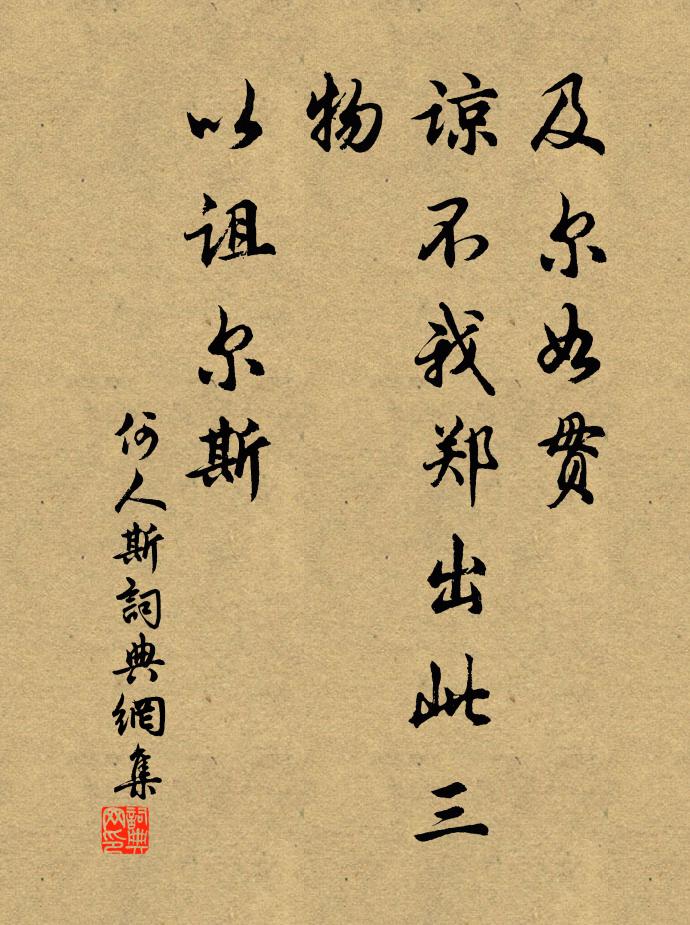 及尔如贯
谅不我郑出此三
物
以诅尔斯
何人斯詞典網集
詞典
网印